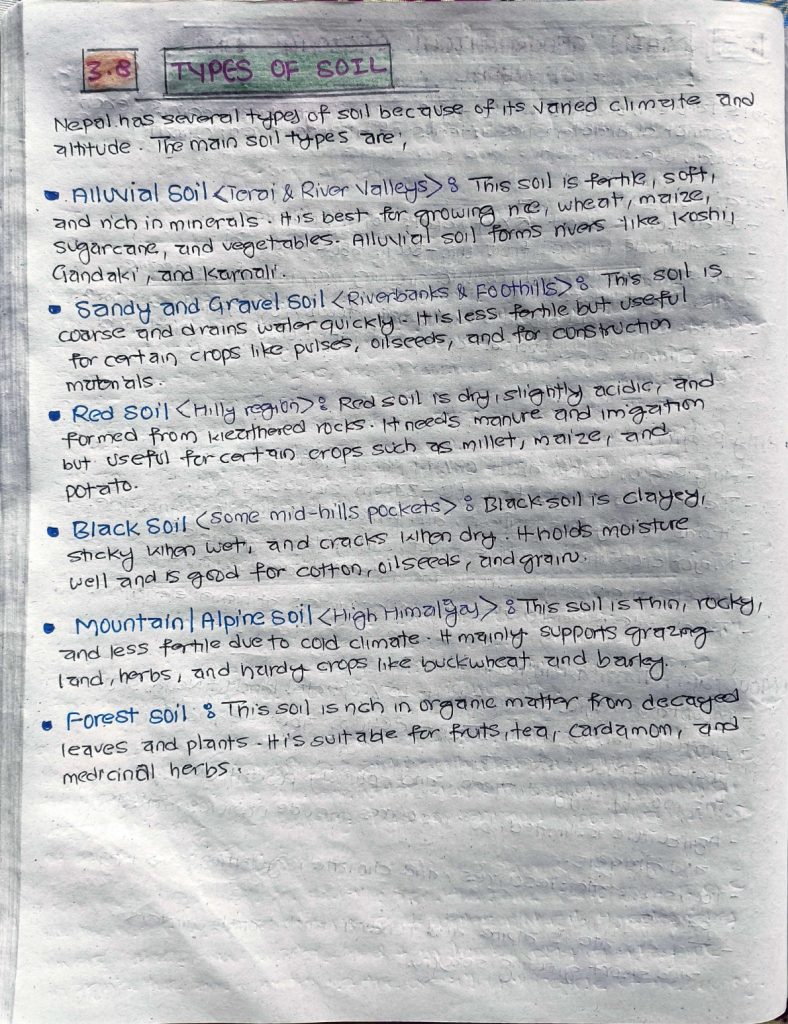 3.8 TYPES OF SOIL
Nepal has several types of soil because of its varied climate and
altitude. The main soil types are,
• Alluvial Soil <Terai & River Valleys> : This soil is fertile, soft,
and rich in minerals. It is best for growing rice, wheat, maize,
sugarcane, and vegetables. Alluvial soil forms rivers like Koshi,
Gandaki, and Karnali.
• Sandy and Gravel Soil <Riverbanks & Foothills> : This soil is
coarse and drains water quickly. It is less fertile but useful
for certain crops like pulses, oilseeds, and for construction
materials.
• Red Soil <Hilly region> : Red soil is dry, slightly acidic, and
formed from weathered rocks. It needs manure and irrigation
but useful for certain crops such as millet, maize, and
potato.
• Black Soil <some mid-hills pockets> : Black soil is clayey,
sticky when wet, and cracks when dry. It holds moisture
well and is good for cotton, oilseeds, and grain.
• Mountain/Alpine Soil <High Himalaya> : This soil is thin, rocky,
and less fertile due to cold climate. It mainly supports grazing
land, herbs, and hardy crops like buckwheat and barley.
• Forest Soil : This soil is rich in organic matter from decayed
leaves and plants. It is suitable for fruts, tea, cardamon, and
medicinal herbs.